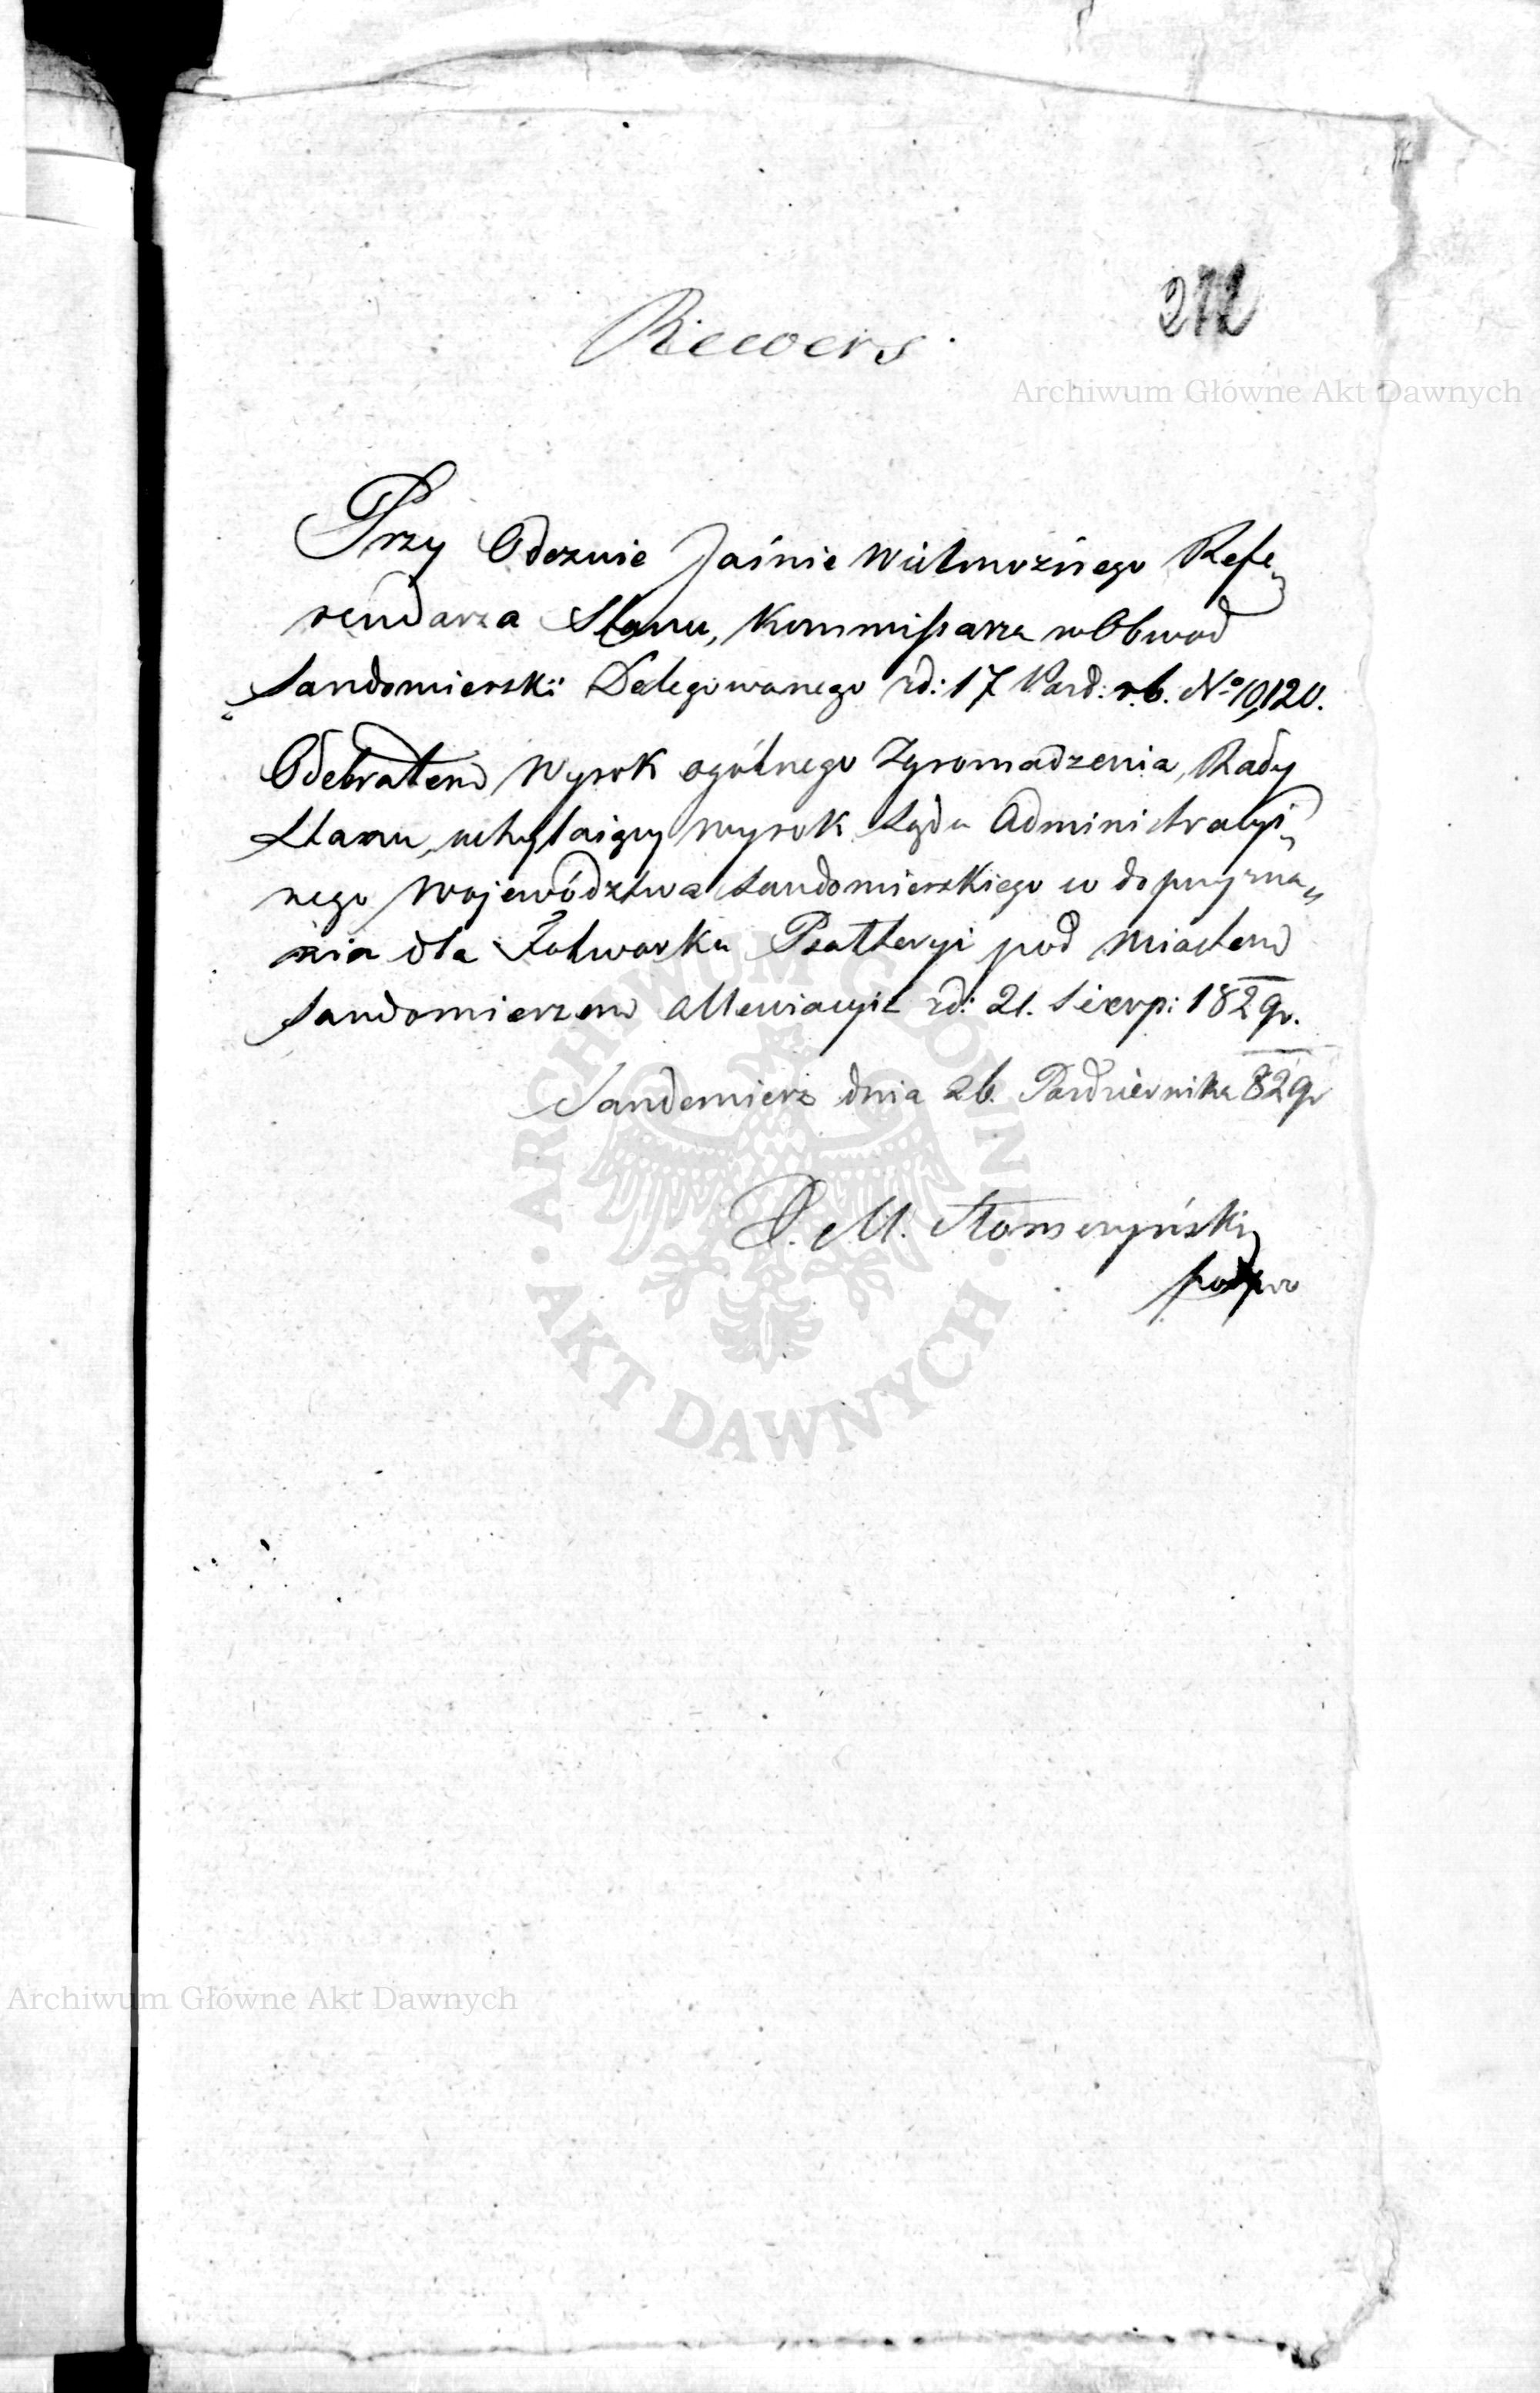 272
Rewers.
Archiwum Główne Akt Dawnych
Przy Odezwie Jaśnie Wielmożnego Refe„
rendarza Stanu, Kommissarza w Obwod
Sandomierski Delegowanego zd: 17 Pazd: r.b. No 10,120.
Odebrałem Wyrok ogólnego Zgromadzenia, Rady
Stanu, uchylaiący wyrok Sądu Administracyi„
nego Województwa Sandomierskiego co do przyzna„
nia dla Folwarku Psatteryi pod Miastem
Sandomierzem Allewiacyie zd: 21. Sierp: 1829r.
Sandomierz dnia 26. Pazdziernika 829r
D. M. Słomczyński
podpro
ARCHIWUM GŁÓWNE
AKT DAWNYCH
Archiwum Główne Akt Dawnych